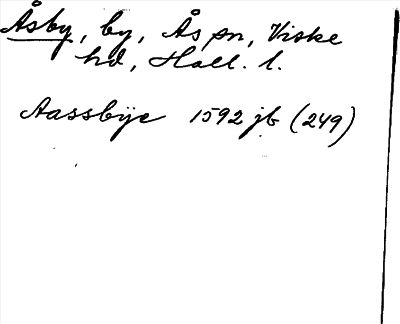 Åsby, by, Ås sn, Viske
hd, Hall. l.
Aassbÿe 1592 jb (249)